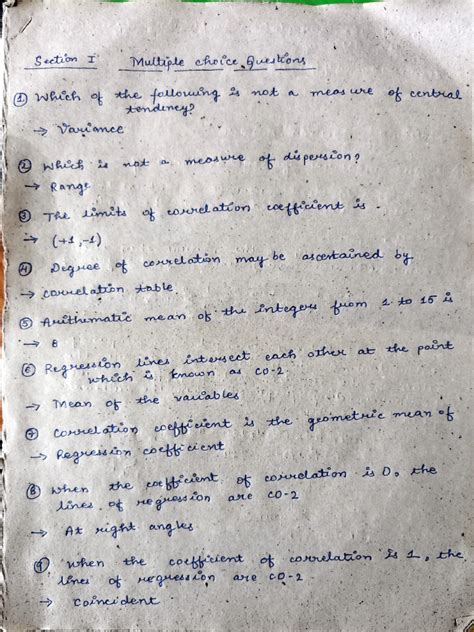 Section I Multiple choice Questions
① Which of the following is not a measure of central
tendency?
→ Variance
② Which is not a measure of dispersion?
→ Range
③ The limits of correlation coefficient is .
→ (+1,-1)
④ Degree of correlation may be ascertained by
→ correlation table
⑤ Arithmatic mean of the integers from 1 to 15 is
→ 8
⑥ Regression lines intersect each other at the point
which is known as CO-2
→ Mean of the variables
⑦ Correlation coefficient is the geometric mean of
→ Regression coefficient
⑧ When the coefficient of correlation is 0, the
lines of regression are CO-2
→ At right angles
⑨ When the coefficient of correlation is 1, the
lines of regression are CO-2
→ coincident